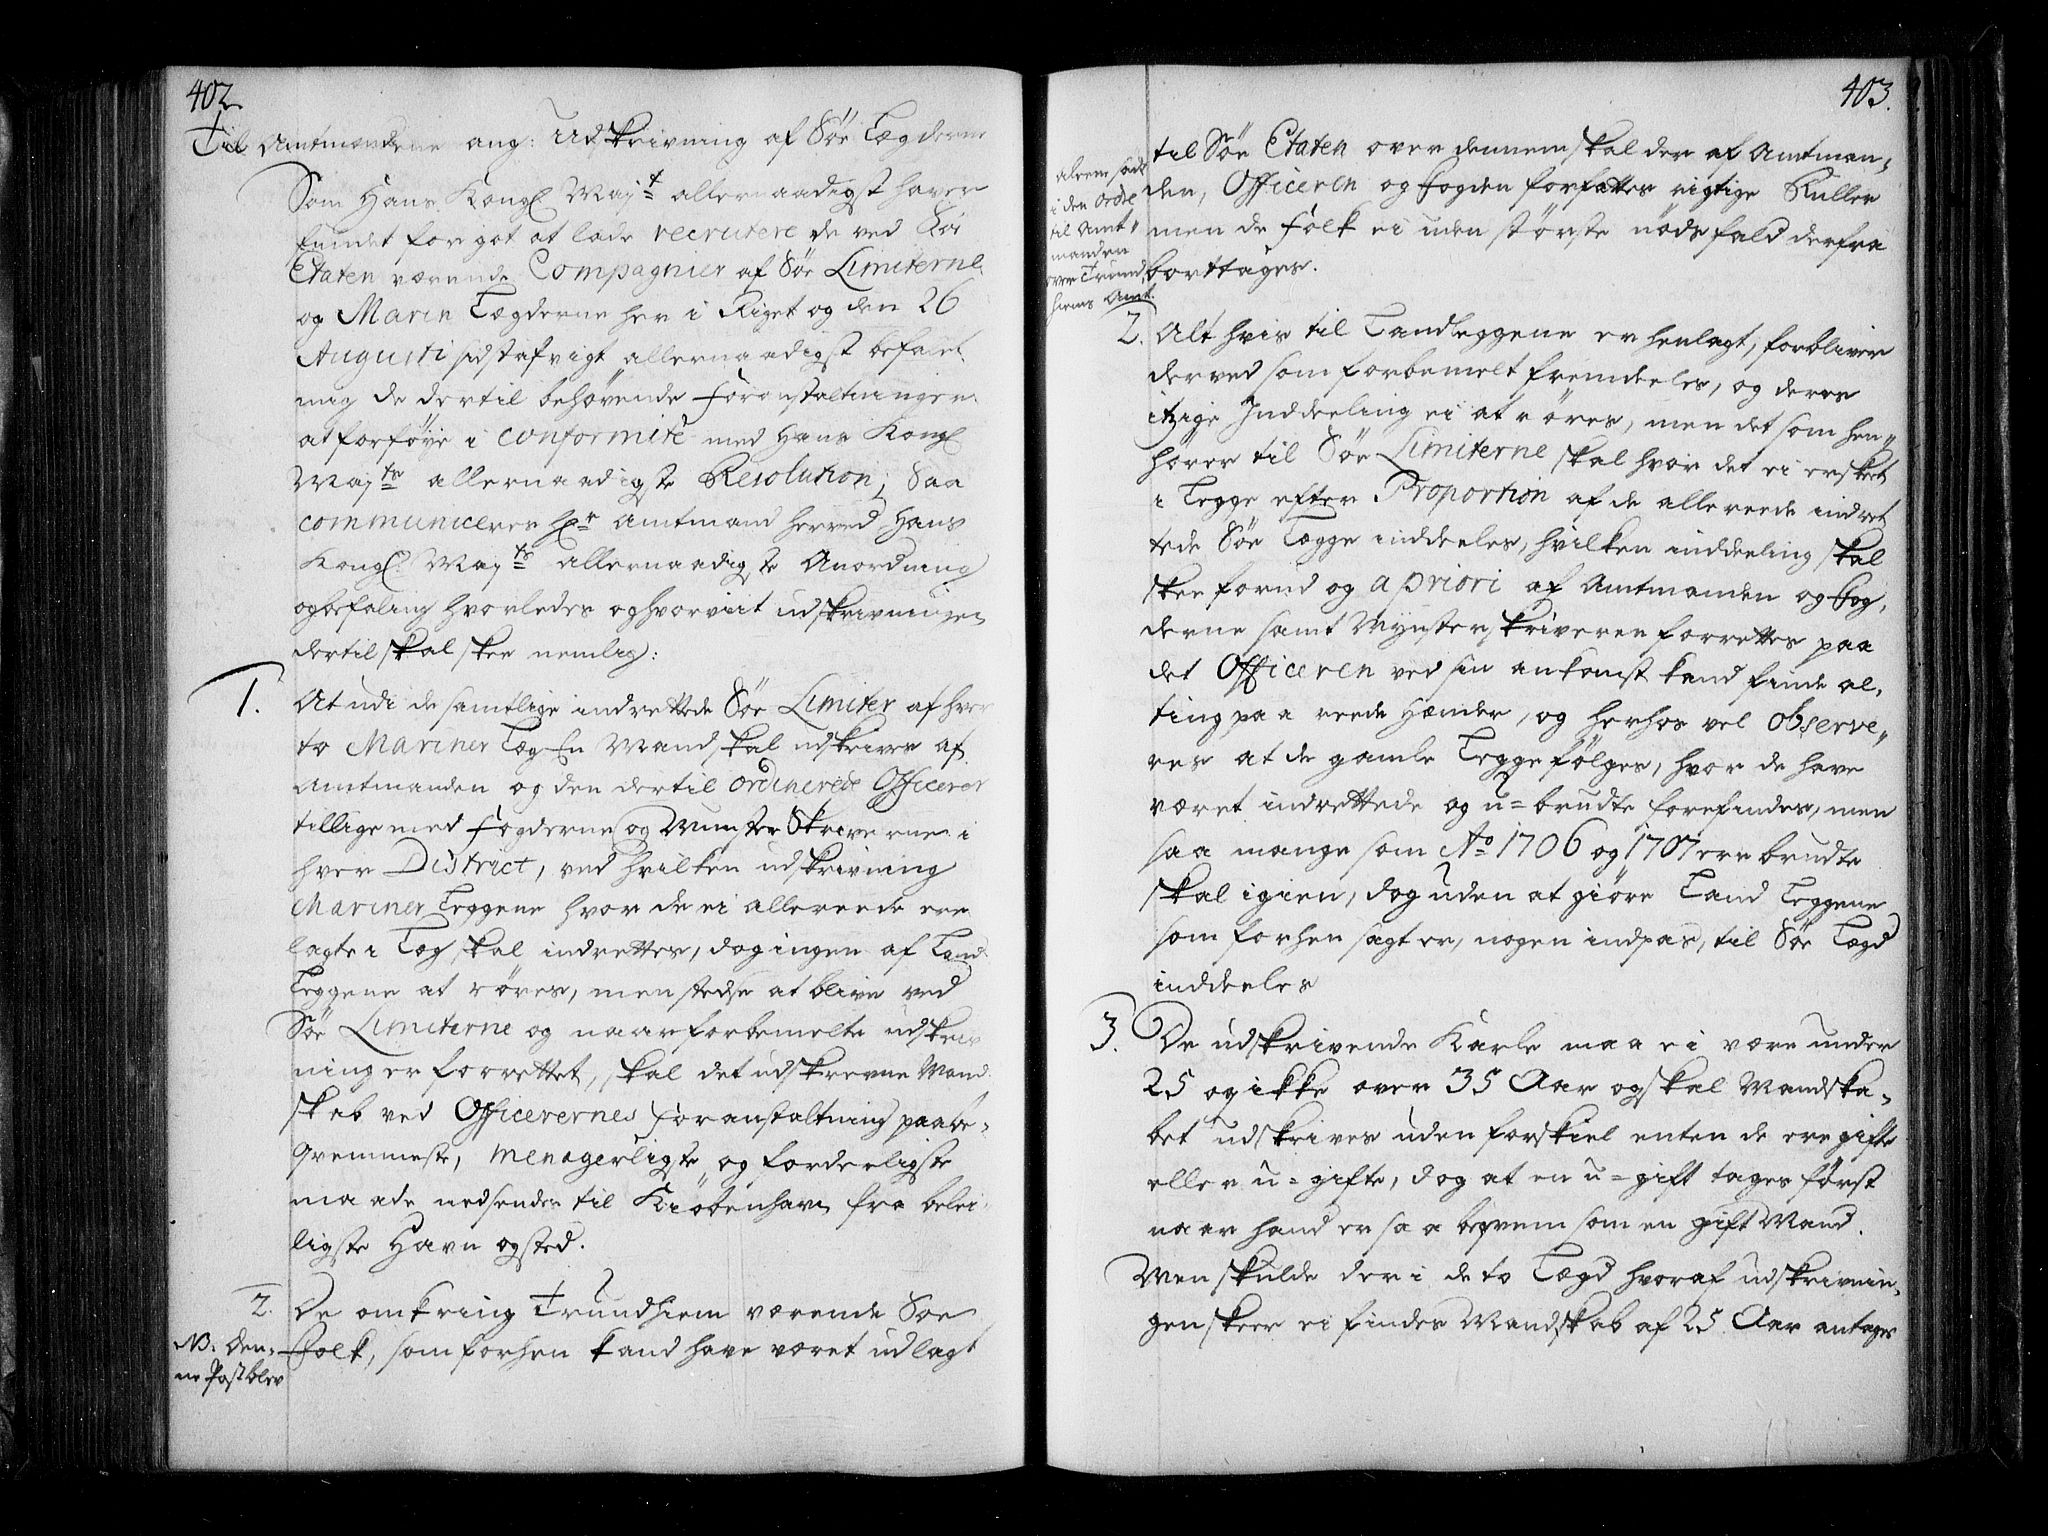 402.
Til Amtmændene ang: Udskrivning af Söe Lægderne
Som Hans Kongl. May.t allernaadigst haver
fundet for got at lade recrutere de ved Söe
Etaten værende Compagnier af Söe Limiterne
og Marin Lægderne her i Riget og den 26
Augusti sidstafvigt allernaadigst befalet
mig de dertil behövende foranstaltninger
at forföye i conformité med Hans Kongl.
May.ts allernaadigste Resolution, Saa
communiceres Hr. Amtmand herved Hans
Kongl. May.ts allernaadigste Anordning
og befaling hvorledes og hvorvit udskrivningen
dertil skal skee nemlig:
1. At udi de samtlige indrettede Söe Limiter af hver
to Mariner Læg En Mand skal udskrives af
Amtmanden og den dertil ordinerede Officerer
tillige med fogderne og Mynster Skriverne i
hver District, ved hvilken udskrivning
Mariner Leggene hvor de ei allereede ere
lagte i Læg skal indrettes, dog ingen af Land
Leggene at röres, men stedse at blive ved
Söe Limiterne og naar forbemelte udskriv
ning er forrettet, skal det udskrevne Mand
skab ved Officerernes foranstaltning paa be-
qvemmeste, menagerligste og forderligste
maade nedsendes til Kiöbenhavn fra belei
ligste Havn og sted.
2. De omkring Trundhiem værende Söe
Folk, som forhen kand have været udlagt
NB. Den-
ne Post blev
403.
aleene sadt
i den Ordre
til Amt"
manden
over Trund
hiems Amt.
til Söe Etaten over dennem skal der af Amtman,
den, Officeren og fogden forfattes rigtige Ruller
men de folk ei uden störste nöds fald derfra
borttages.
2. Alt hvis til Landleggene er henlagt, forbliver
derved som forbemelt fremdeeles, og deres
itzige Inddeeling ei at röres, men det som hen"
hører til Söe Limiterne skal hvor det ei er skeet
i Legge efter Proportion af de allereede indret
tede Söe Lægge inddeeles, hvilken inddeeling skal
skee forud og a priori af Amtmanden og Fog,
derne samt Mynsterskriveren forrettes paa
det Officeren ved sin ankomst kand finde al,
ting paa reede Hænder, og herhos vel observe"
res at de gamle Legge fölges, hvor de have
været indrettede og u=brudte forefindes, men
saa mange som Ao 1706 og 1707 ere brudte
skal igien, dog uden at giöre Land Leggene
som forhen sagt er, nogen indpas, til Söe Lægd
inddeeles
3. De udskrivende Karle maa ei være under
25 og ikke over 35 Aar og skal Mandska,
bet udskrives uden forskiel enten de ere gifte
eller u=gifte, dog at en u=gift tages först
naar hand er saa beqvem som en gift Mand.
Men skulde der i de to Lægd hvoraf udskrivnin,
gen skeer ei findes Mandskab af 25 Aar antages